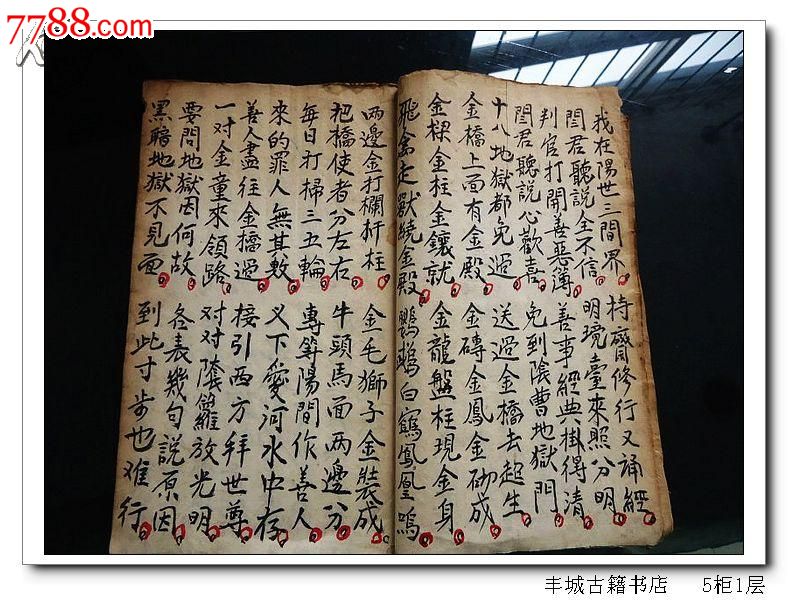 7788.com
我在陽世三間界 持齋修行又誦經
閻君聽說全不信 明境臺來照分明
判官打開善惡簿 善事經典掛得清
閻君聽說心歡喜 免到陰曹地獄門
十八地獄都免過 送過金橋去超生
金橋上面有金殿 金磚金鳳金砌成
金樑金柱金鑲就 金龍盤柱現金身
飛禽走獸繞金殿 鸚鵡白鶴鳳凰鳴
兩邊金打欄杆柱 金毛獅子金裝成
把橋使者分左右 牛頭馬面兩邊分
每日打掃三五輪 專等陽間作善人
來的罪人無其數 义下愛河水中存
善人盡往金橋過 接引西方拜世尊
一对金童來領路 对对隂籮放光明
要問地獄因何故 各表幾句說原因
黑暗地獄不見面 到此寸步也难行
丰城古籍书店 5柜1层